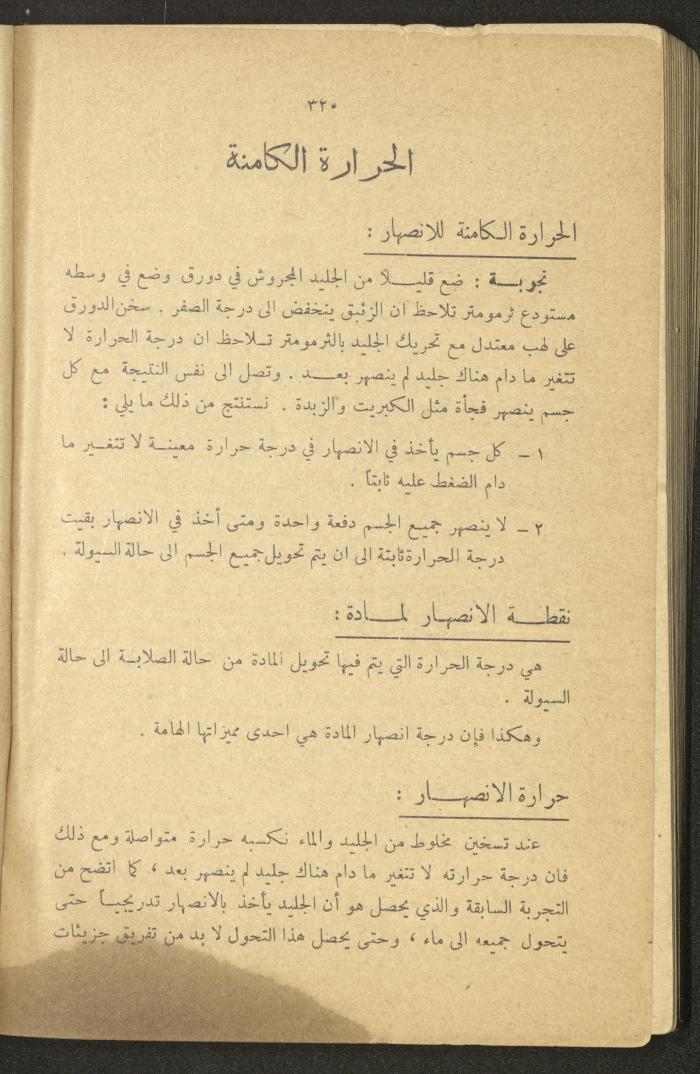 ٣٢٠
الحرارة الكامنة
الحرارة الكامنة للانصهار :
تجربة : ضع قليلاً من الجليد المجروش في دورق وضع في وسطه
مستودع ثرمومتر تلاحظ ان الزئبق ينخفض الى درجة الصفر . سخن الدورق
على لهب معتدل مع تحريك الجليد بالثرمومتر تلاحظ ان درجة الحرارة لا
تتغير ما دام هناك جليد لم ينصهر بعد . وتصل الى نفس النتيجة مع كل
جسم ينصهر فجأة مثل الكبريت والزبدة . نستنتج من ذلك ما يلي :
١ - كل جسم يأخذ في الانصهار في درجة حرارة معينة لا تتغير ما
دام الضغط عليه ثابتاً .
٢ - لا ينصهر جميع الجسم دفعة واحدة ومتى أخذ في الانصهار بقيت
درجة الحرارة ثابتة الى ان يتم تحويل جميع الجسم الى حالة السيولة .
نقطة الانصهار لمادة :
هي درجة الحرارة التي يتم فيها تحويل المادة من حالة الصلابة الى حالة
السيولة .
وهكذا فإن درجة انصهار المادة هي احدى مميزاتها الهامة .
حرارة الانصهار :
عند تسخين مخلوط من الجليد والماء نكسبه حرارة متواصلة ومع ذلك
فان درجة حرارته لا تتغير ما دام هناك جليد لم ينصهر بعد ، كما اتضح من
التجربة السابقة والذي يحصل هو أن الجليد يأخذ بالانصهار تدريجياً حتى
يتحول جميعه الى ماء ، وحتى يحصل هذا التحول لا بد من تفريق جزيئات